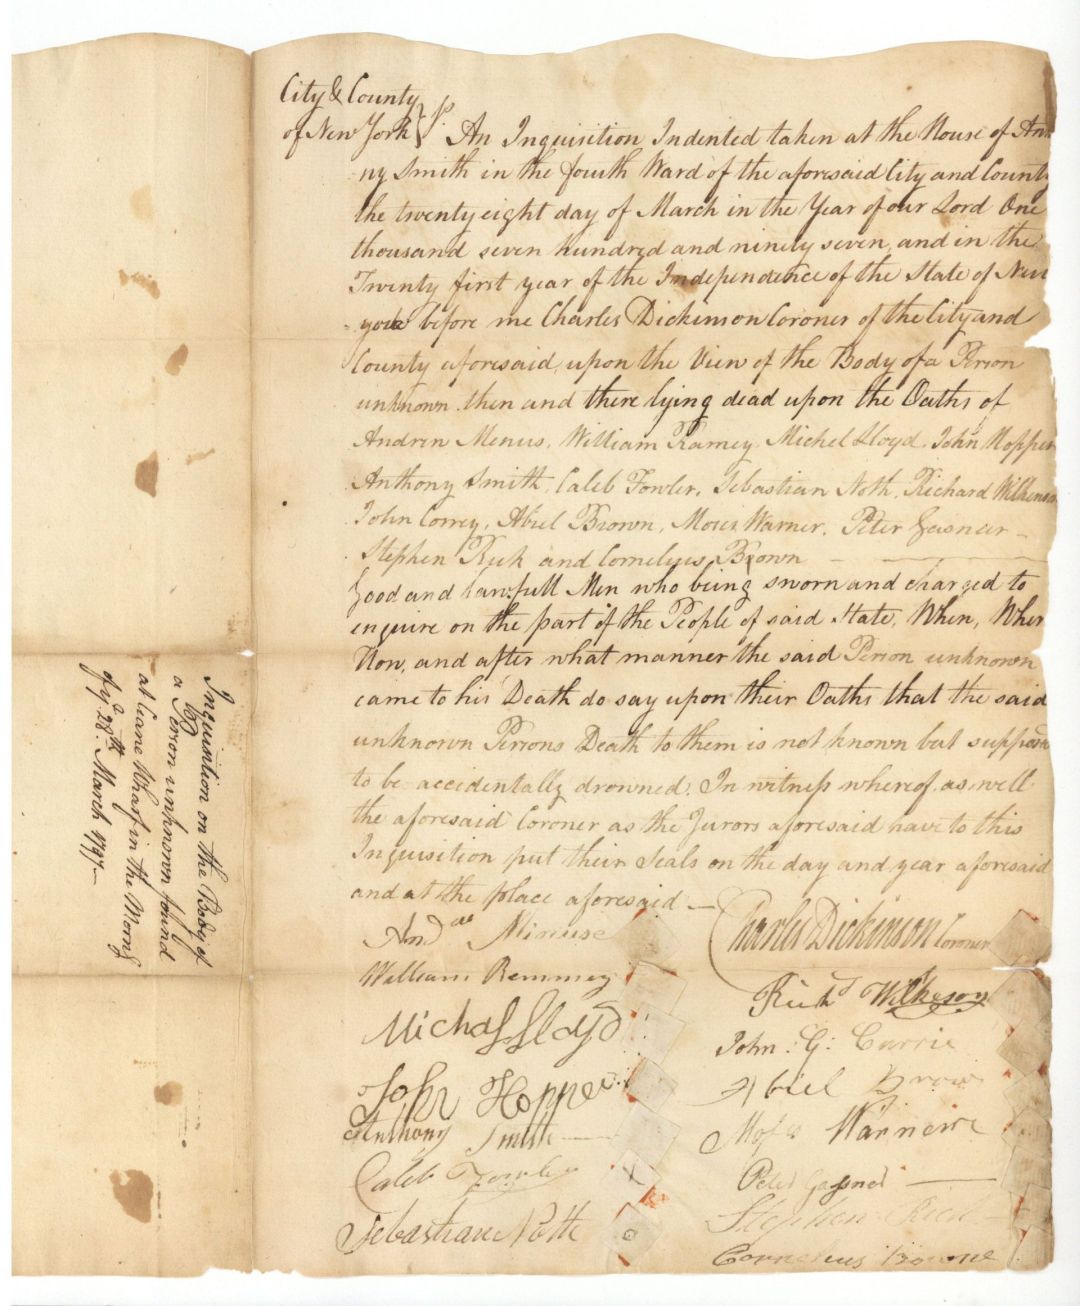 City & County
of New York } ss. An Inquisition Indented taken at the House of
ny Smith in the fourth Ward of the aforesaid City and County
the twenty eight day of March in the Year of our Lord One
thousand seven hundred and ninety seven, and in the
Twenty first year of the Independence of the State of New
york before me Charles Dickinson Coroner of the City and
County aforesaid, upon the View of the Body of a Person
unknown then and there lying dead upon the Oaths of
Andrew Menus, William Ramey, Michel Lloyd, John Hopper
Anthony Smith, Caleb Fowler, Sebastian Noth, Richard Wilkenson
John Correy, Abiel Brown, Moses Warner, Peter Gasner
Stephen Rich and Cornelius Brown
Good and Lawfull Men who being sworn and charged to
enquire on the part of the People of said State, When, Wher
How, and after what manner the said Person unknown
came to his Death do say upon their Oaths that the said
unknown Persons Death to them is not known but supposed
to be accidentally drowned. In witness whereof as well
the aforesaid Coroner as the Jurors aforesaid have to this
Inquisition put their Seals on the day and year aforesaid
and at the place aforesaid —
Andas Minuse
Charles Dickinson Coroner
William Remmey
Richd Wilkeson
Michal Lloyd
John: G: Currie
John Hopper
Abiel Brow
Anthony Smith
Moses Warner
Caleb Fowler
Peter Gassner
Sebastiane Notte
Stephen Rich
Cornelius
Inquisition on the Body of
a Person unknown found
at Coane Wharf in the Morng
of ye 28th March 1797—